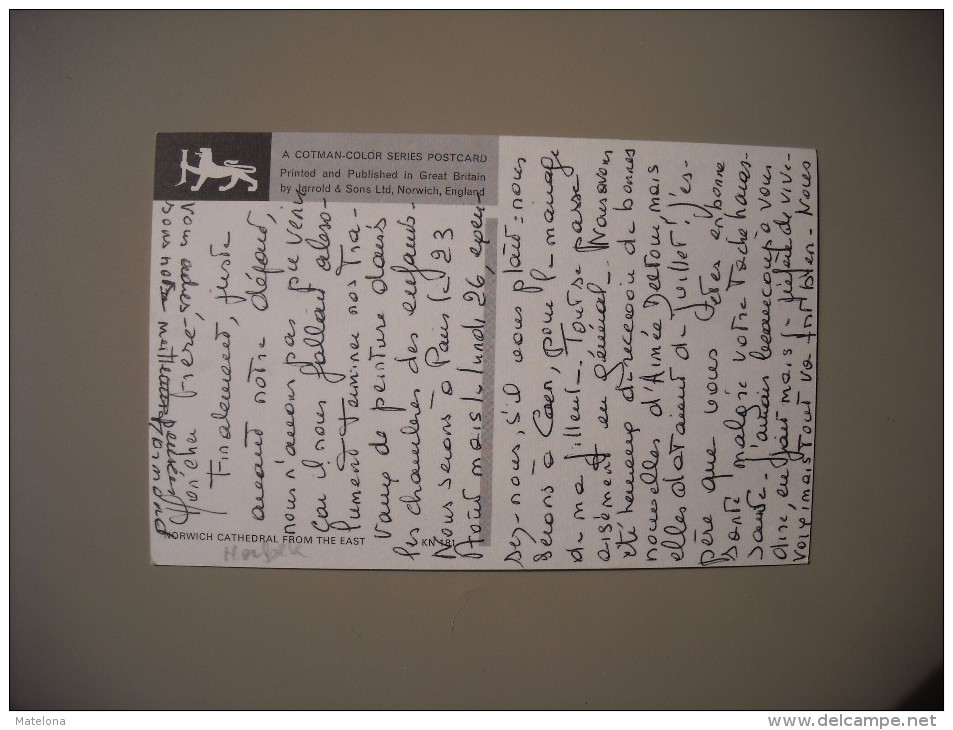 A COTMAN-COLOR SERIES POSTCARD
Printed and Published in Great Britain
by Jarrold & Sons Ltd, Norwich, England
NORWICH CATHEDRAL FROM THE EAST
KN 181
Norfolk
Mon cher frère,
Finalement, juste
avant notre départ,
nous n'avons pas pu venir
car il nous fallait abso-
lument terminer nos tra-
vaux de peinture dans
les chambres des enfants.
Nous serons à Paris le 23
Août mais le lundi 26,
dez-nous, s'il vous plaît = nous
serons à Caen, pour le mariage
de ma filleule. Tout se passe
aisément en général. Nous avons
été heureux de recevoir de bonnes
nouvelles d'Aimée Dertour, mais
elles dataient de juillet. J'es-
père que vous êtes en bonne
santé malgré votre tâche haras-
sante. J'aurais beaucoup à vous
dire, en fait mais je viens de vive-
voix, mais tout va très bien. Nous
vous
sons nos meilleures
Armand
Matelona
www.delcampe.net